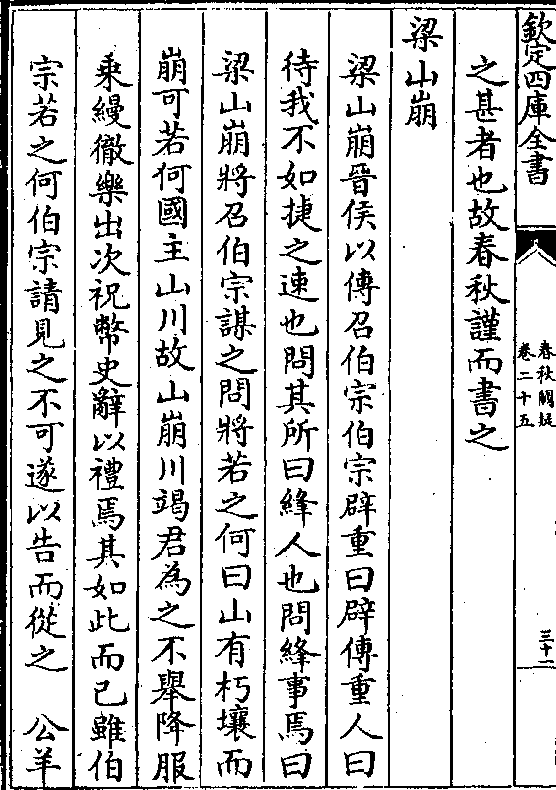 欽定四庫全書
春秋闕疑
卷二十五
三十二
之甚者也故春秋謹而書之
梁山崩
梁山崩晉侯以傳召伯宗伯宗辟重曰辟傳重人曰
待我不如捷之速也問其所曰絳人也問絳事焉曰
梁山崩將召伯宗謀之問將若之何曰山有朽壤而
崩可若何國主山川故山崩川竭君為之不舉降服
乗縵徹樂出次祝幣史辭以禮焉其如此而已雖伯
宗若之何伯宗請見之不可遂以告而從之 公羊